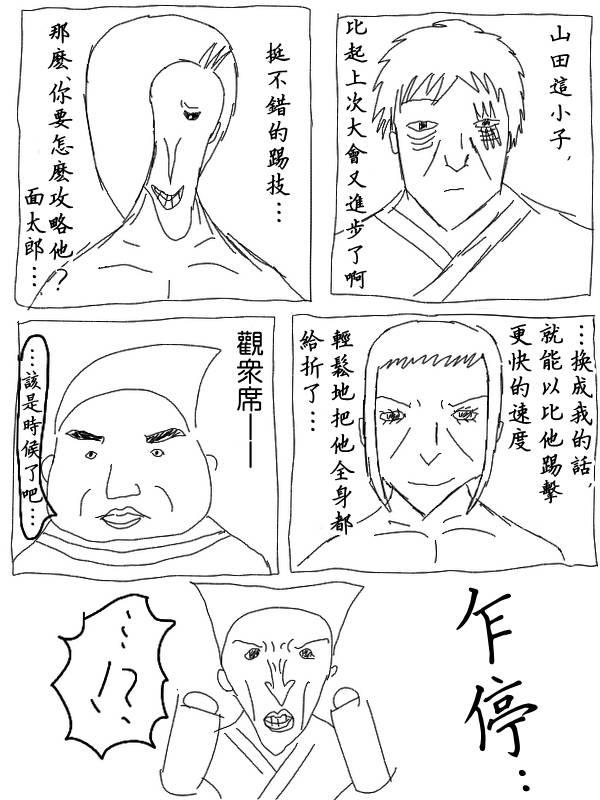 山田這小子，
比起上次大會又進步了啊
挺不錯的踢技…
那麼、你要怎麼攻略他？
面太郎…
…換成我的話，
就能以比他踢擊
更快的速度
輕鬆地把他全身都
給折了…
觀眾席——
…該是時候了吧…
乍停…
…!?